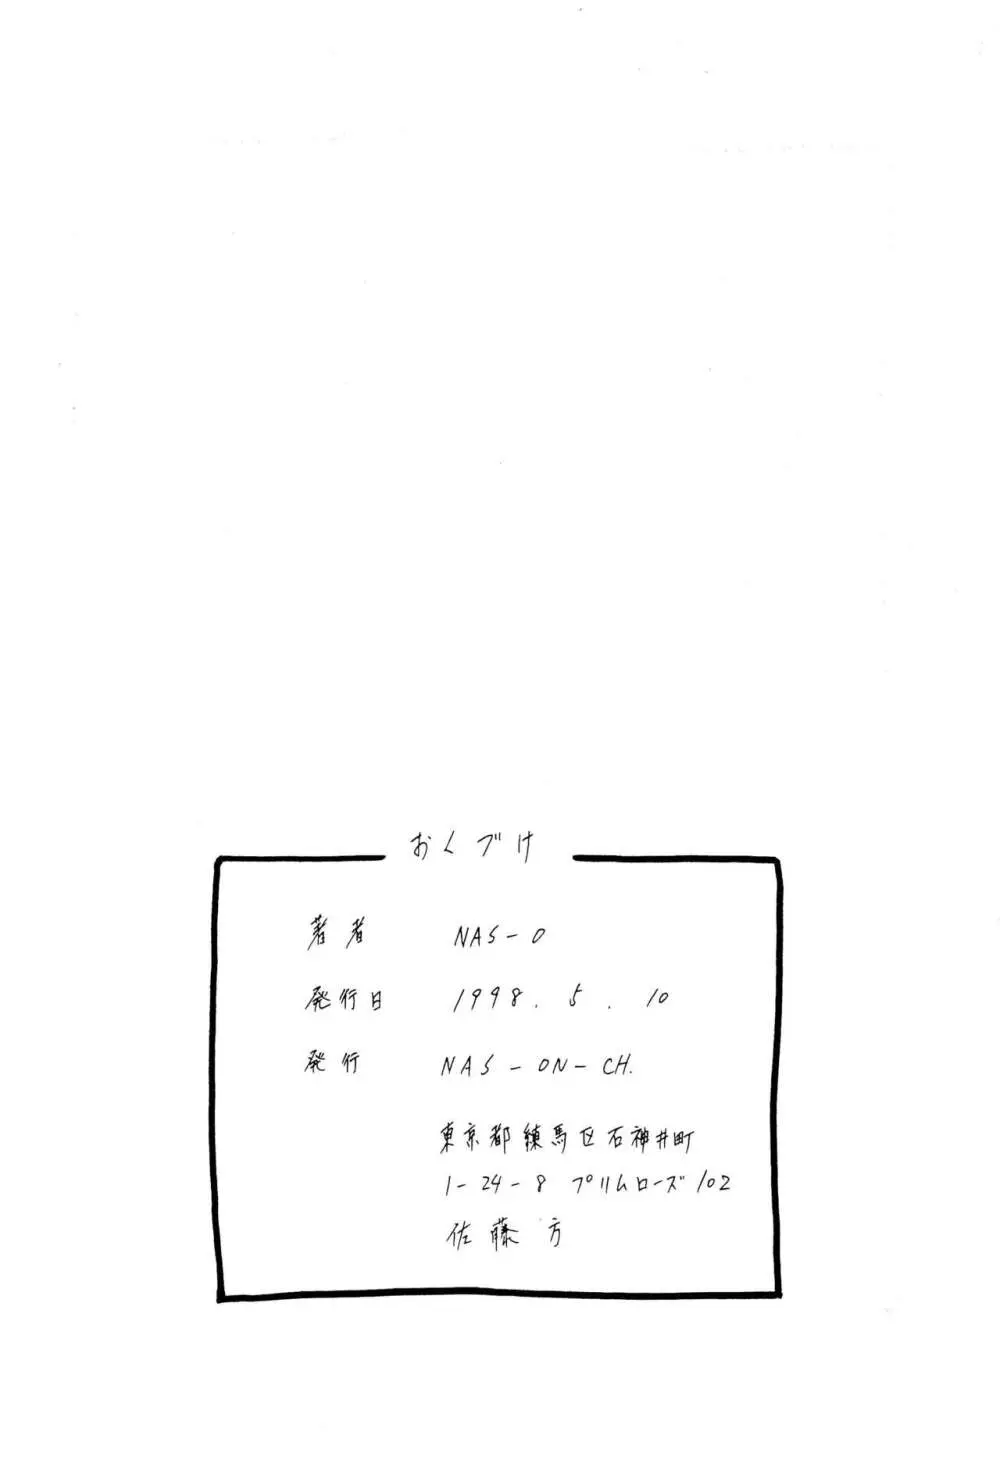 おくづけ
著者 NAS-O
発行日 1998. 5. 10
発行 NAS-ON-CH.
東京都練馬区石神井町
1-24-8 プリムローズ102
佐藤方